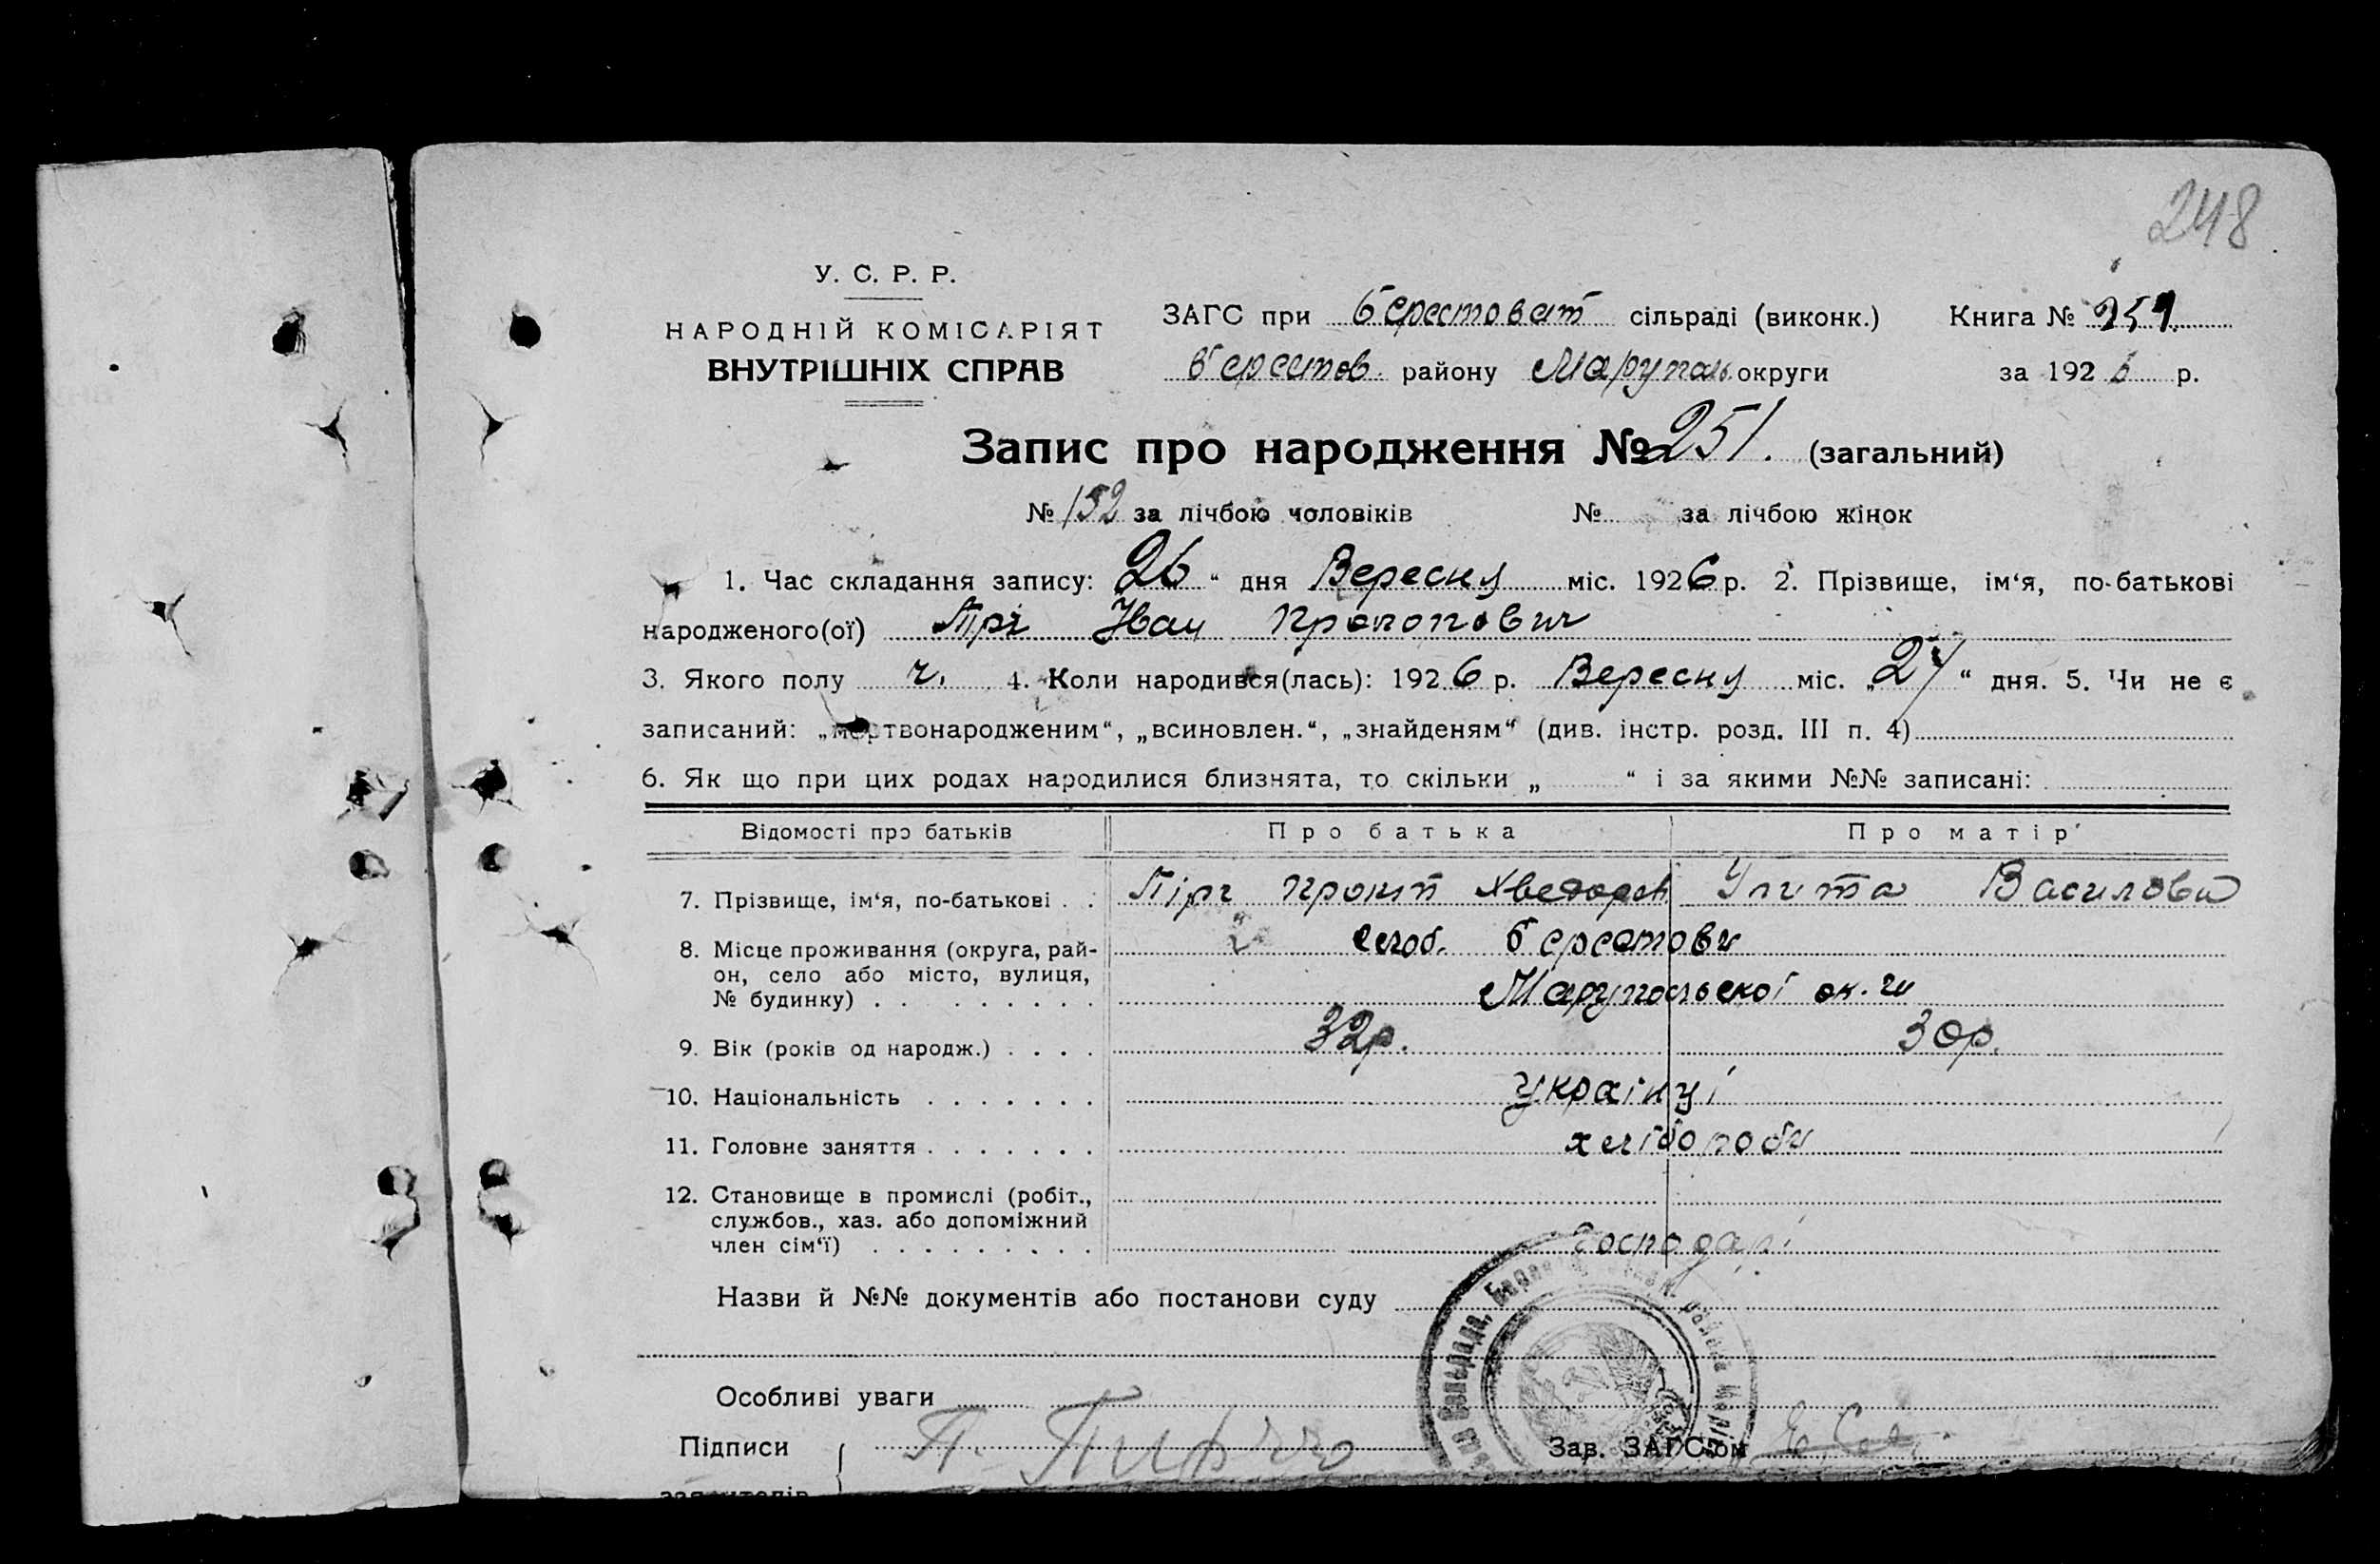 248
У. С. Р. Р.
НАРОДНІЙ КОМІСАРІЯТ
ВНУТРІШНІХ СПРАВ
ЗАГС при Берестоват сільраді (виконк.) Книга №
району Маруполь округи за 1926 р.
Запис про народження № 251. (загальний)
№ 152 за лічбою чоловіків № за лічбою жінок
1. Час складання запису: 26 “ дня Вересня міс. 1926 р. 2. Прізвище, ім‘я, по-батькові
народженого(ої) Іван
3. Якого полу ч. 4. Коли народився(лась): 1926 р. Вересня міс. „ “ дня. 5. Чи не є
записаний: „мертвонародженим“, „всиновлен.“, „знайденям“ (див. інстр. розд. III п. 4)
6. Як що при цих родах народилися близнята, то скільки „ “ і за якими №№ записані:
Відомості про батьків Про батька Про матір
7. Прізвище, ім‘я, по-батькові Василова
8. Місце проживання (округа, рай-
он, село або місто, вулиця,
№ будинку) Марупольської
9. Вік (років од народж.) 32р. 30р.
10. Національність українці
11. Головне заняття хлібороби
12. Становище в промислі (робіт.,
службов., хаз. або допоміжний
член сім‘ї) господарі
Назви й №№ документів або постанови суду
Особливі уваги
Підписи П. Зав. ЗАГС‘ом
заявителів